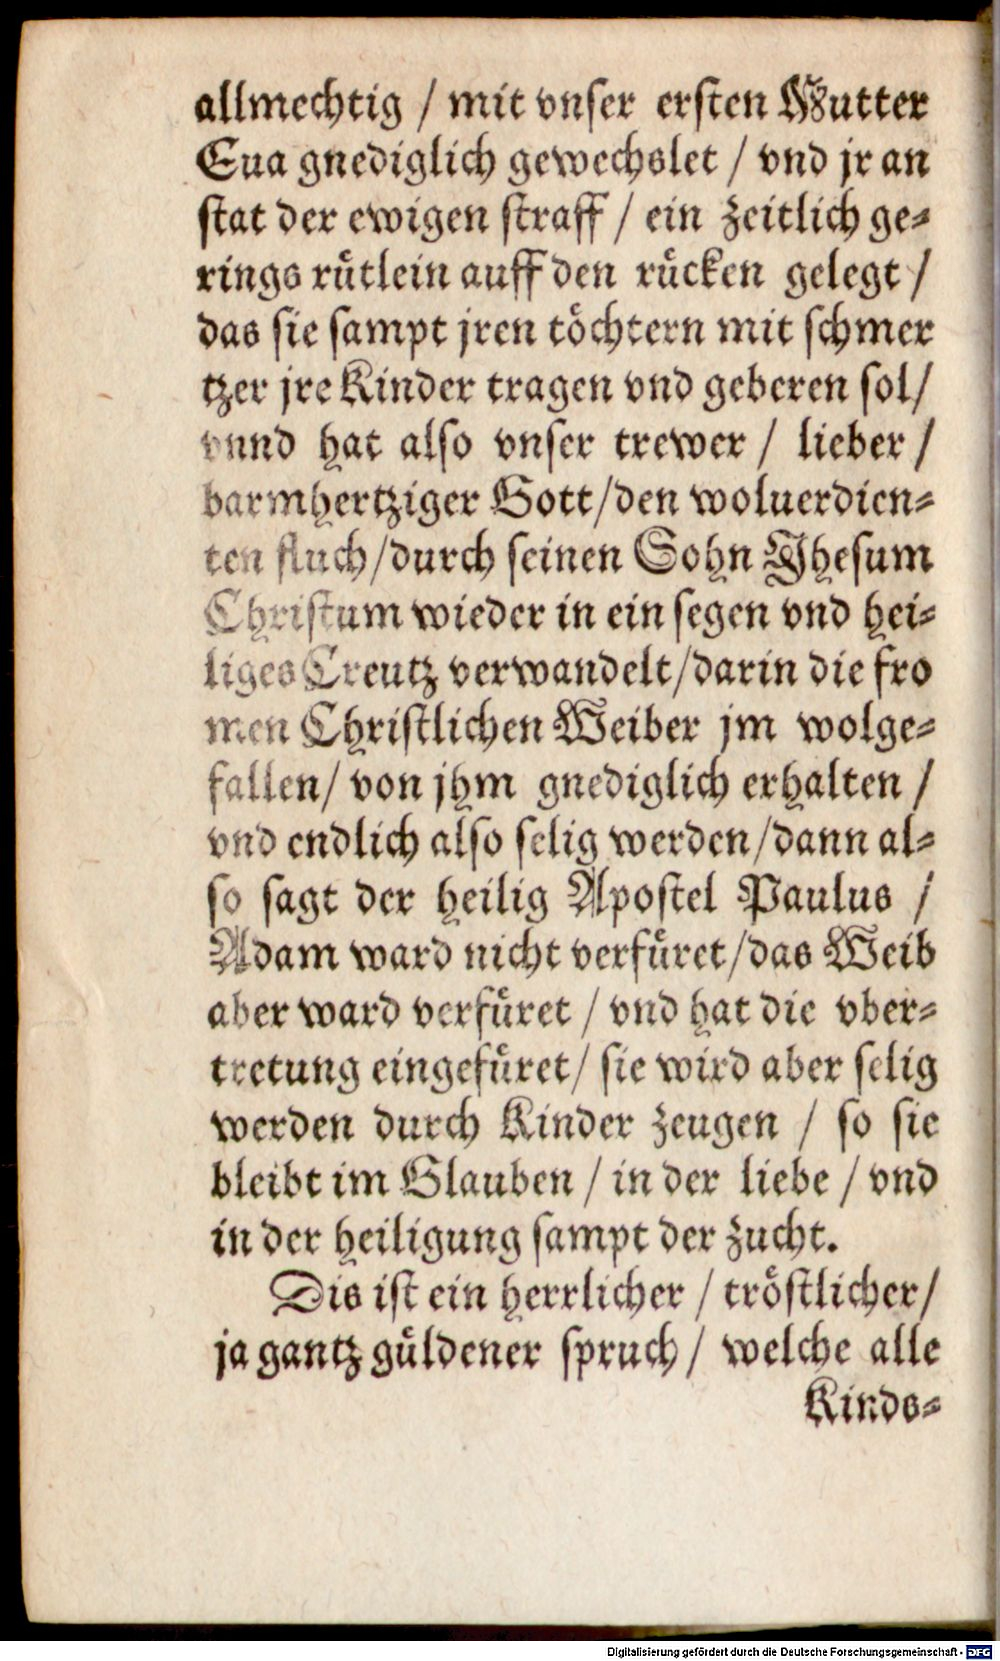 allmechtig / mit vnser ersten Mutter
Eua gnediglich gewechslet / vnd jr an
stat der ewigen straff / ein zeitlich ge-
rings rütlein auff den rücken gelegt /
das sie sampt jren töchtern mit schmer
tzer jre Kinder tragen vnd geberen sol /
vnnd hat also vnser trewer / lieber /
barmhertziger Gott / den woluerdien-
ten fluch / durch seinen Sohn Jhesum
Christum wieder in ein segen vnd hei-
liges Creutz verwandelt / darin die fro
men Christlichen Weiber jm wolge-
fallen / von jhm gnediglich erhalten /
vnd endlich also selig werden / dann al-
so sagt der heilig Apostel Paulus /
Adam ward nicht verfüret / das Weib
aber ward verfüret / vnd hat die vber-
tretung eingefüret / sie wird aber selig
werden durch Kinder zeugen / so sie
bleibt im Glauben / in der liebe / vnd
in der heiligung sampt der zucht.
Dis ist ein herrlicher / tröstlicher /
ja gantz güldener spruch / welche alle
Kinds-
Digitalisierung gefördert durch die Deutsche Forschungsgemeinschaft - DFG